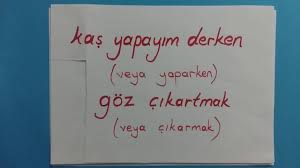 kaş yapayım derken
(veya yaparken)
göz çıkartmak
(veya çıkarmak)